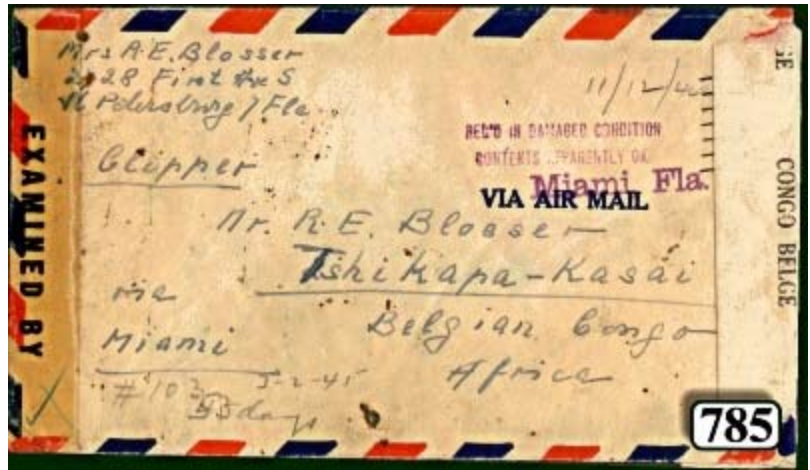 Mrs A.E. Blosser
First Ave S
St Petersburg, Fla
11/12/44
Clipper
REC'D IN DAMAGED CONDITION
CONTENTS APPARENTLY OK
Miami Fla.
VIA AIR MAIL
Mr. R.E. Blosser
Tshikapa-Kasai
via
Belgian Congo
Miami
Africa
#103 3-2-45
days
EXAMINED BY
GE
CONGO BELGE
785